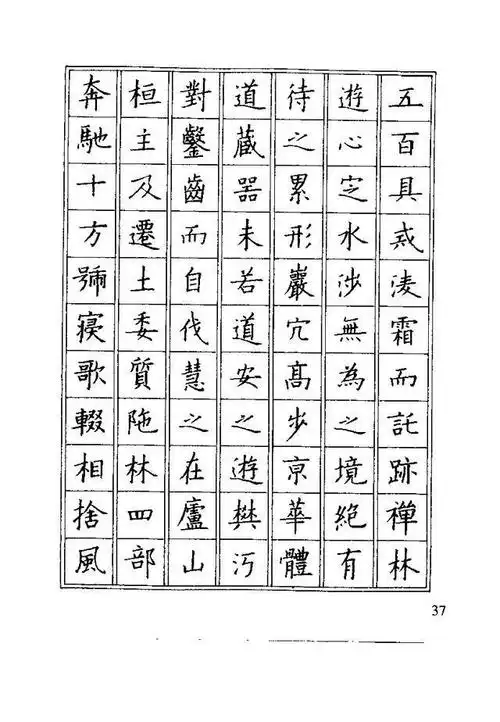 五百具戒淩霜而託跡禪林
遊心定水涉無為之境絕有
待之累形巖穴高步京華體
道藏器未若道安之遊樊沔
對鑿齒而自伐慧之在廬山
桓主及遷土委質陁林四部
奔馳十方號寑歌輟相捨風
37